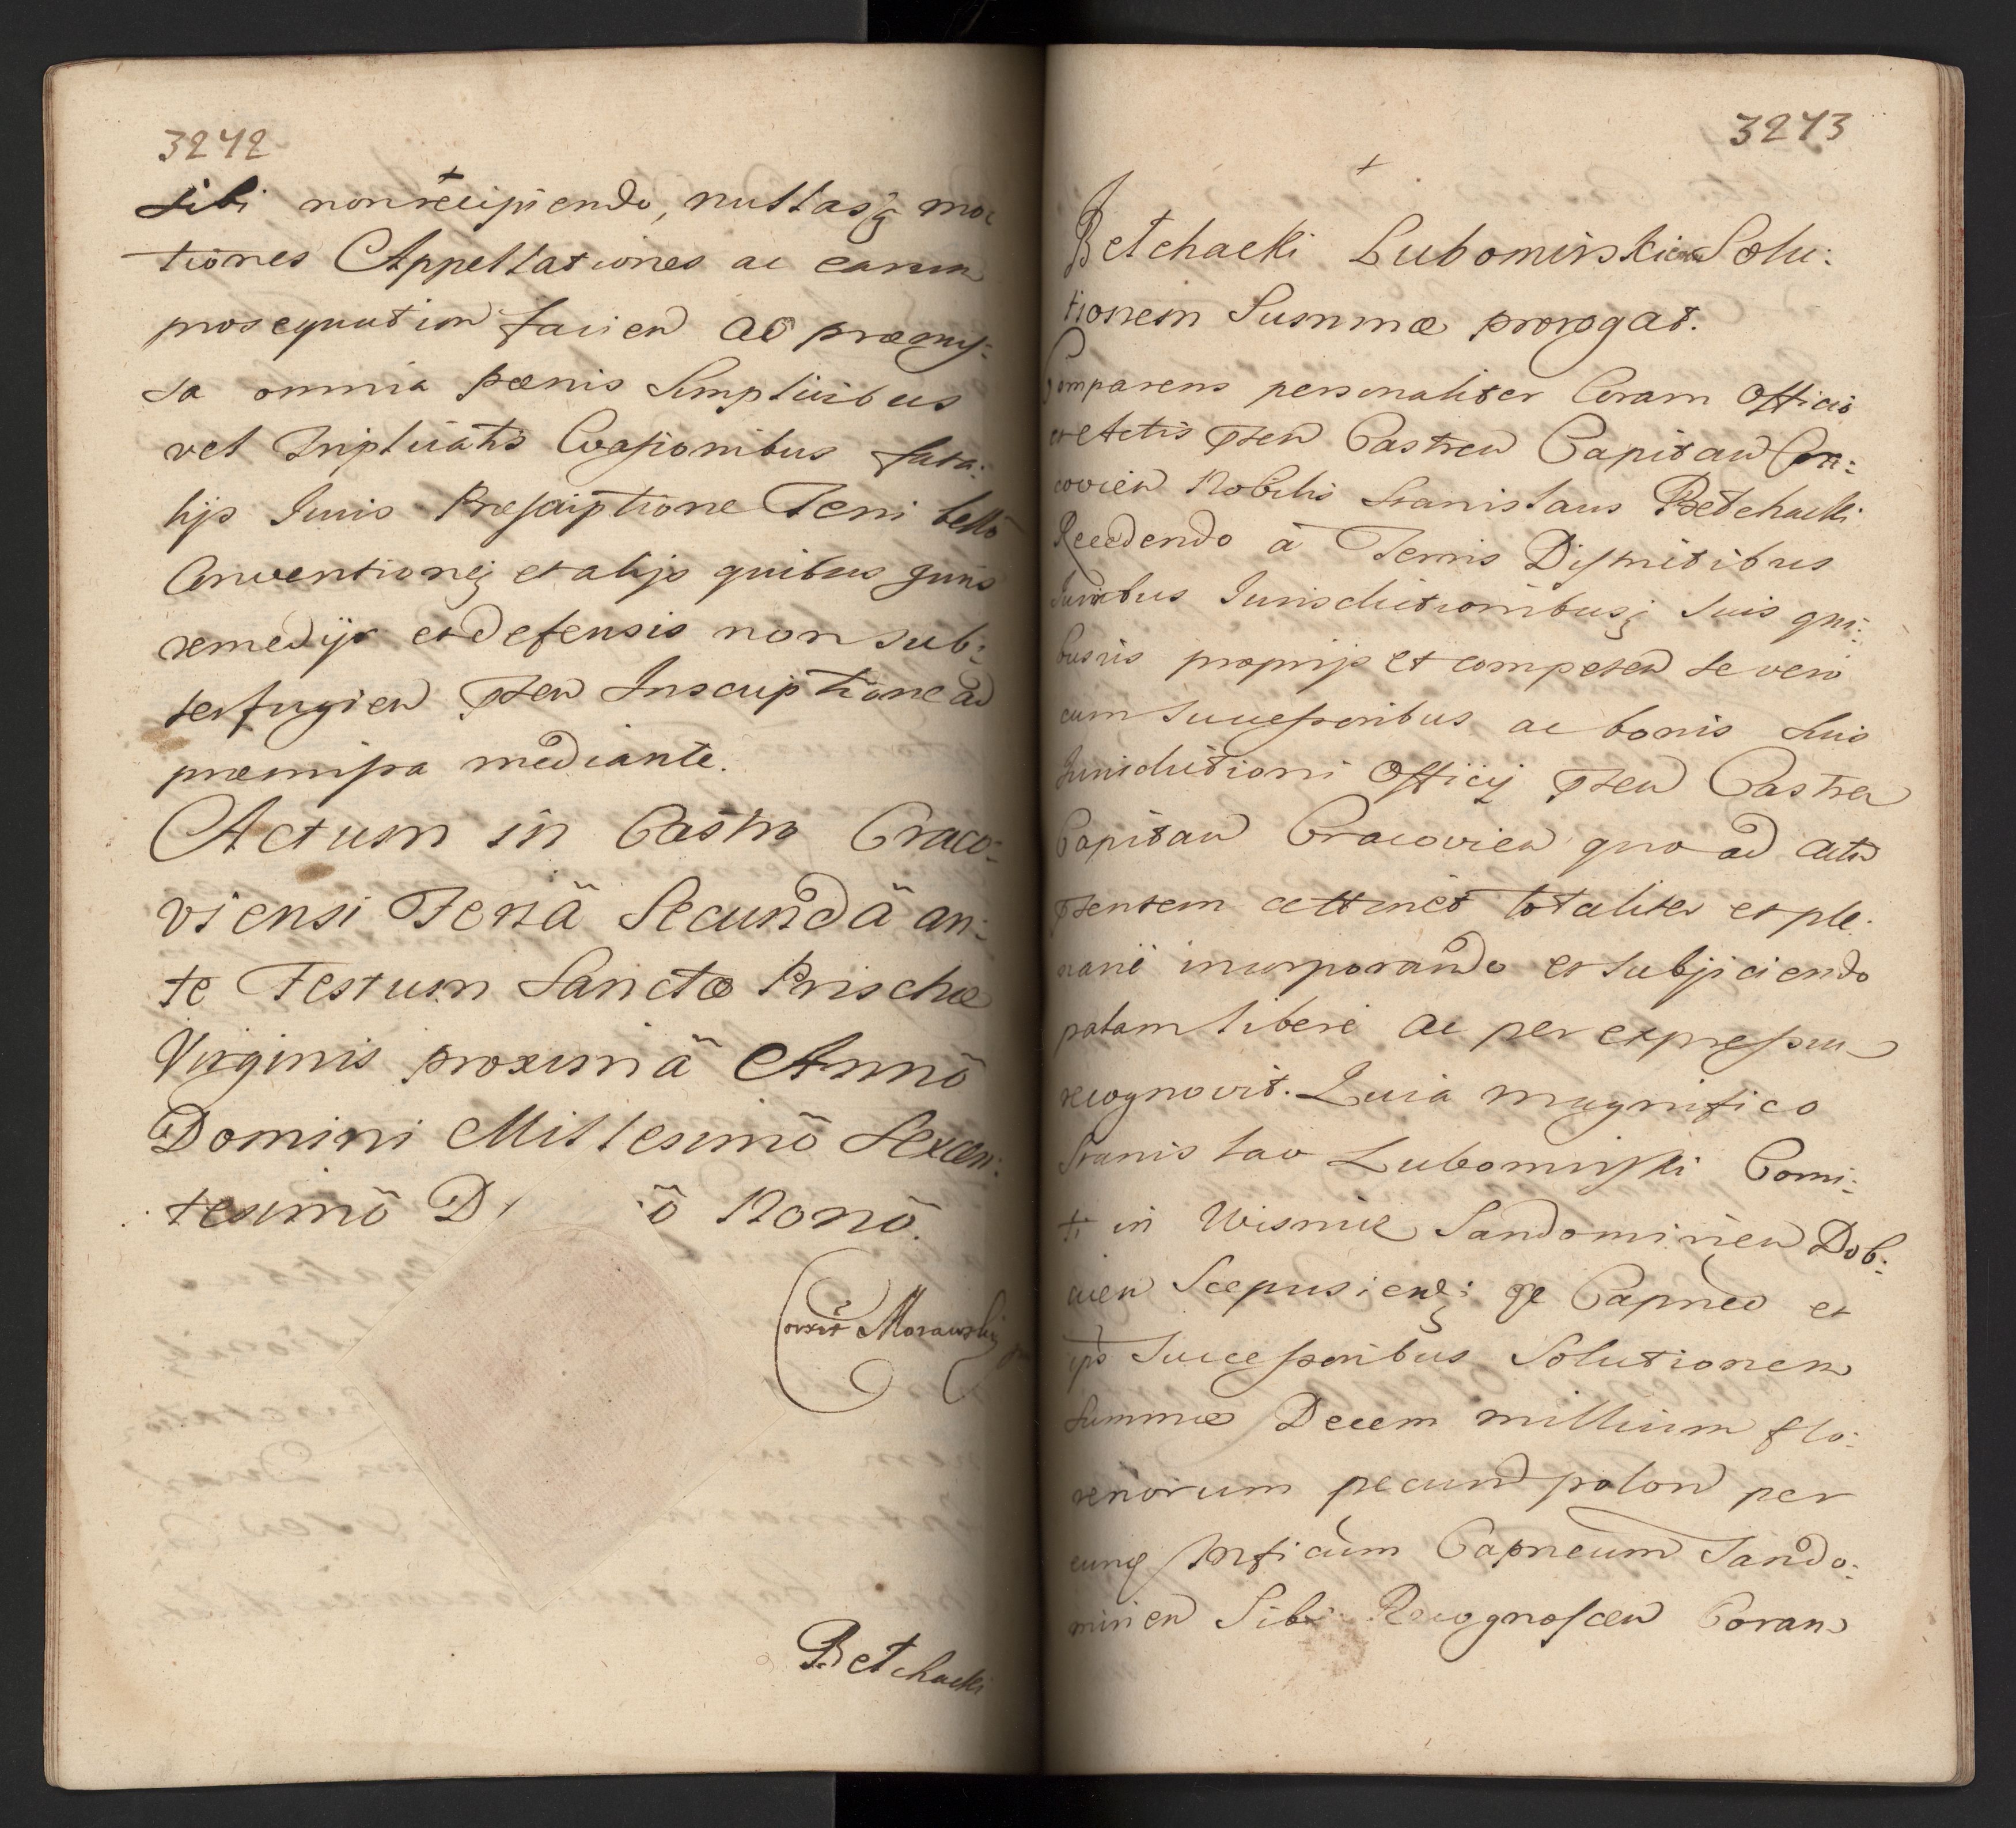 3242
sibi non recipiendo, nullasq mo
tiones Appellationes ac earum
prosequution facien ad præmis:
sa omnia pænis simplicibus
vel Triplicatis Evasionibus fata:
lijs Juris Præscriptione Terri belló
Conventioneq et alijs quibus Juris
remedijs et defensis non sub:
terfugien Pten Inscriptione ad
præmissa mediante.
Actum in Castro Craco:
viensi Feriâ Secundâ an:
te Festum Sanctæ Prischæ
Virginis proximâ Annô
Domini Millesimô Sexcen:
tesimô D ô Nonô.
Correxit Morawski
Betchacki
3243
Betchacki Lubomirskiem Solu:
tionem Summæ prorogat.
Comparens personaliter Coram Officio
et Actis Pten Castren Capitan Cra:
covien Nobilis Stanislaus Betchacki
Recedendo à Terris Districtibus
Juribus Jurisdictionibusq suis qui:
busvis proprijs et competen se vero
cum Successoribus ac bonis suis
Jurisdictioni Officij Pten Castren
Capitan Cracovien quo ad actu
Ptentem attinet totaliter et ple:
narié incorporando et subjiciendo
palam liberé ac per expressum
recognovit. Quia magnifico
Stanislao Lubomirski Comi:
ti in Wisnicz Sandomirien Dob:
cien Scepusienq: &c Capneo et
ips Successoribus Solutionem
summæ Decem millium flo:
renorum pecun polon per
eung Mficum Capneum Sando:
mirien Sibi Recognoscen Coram